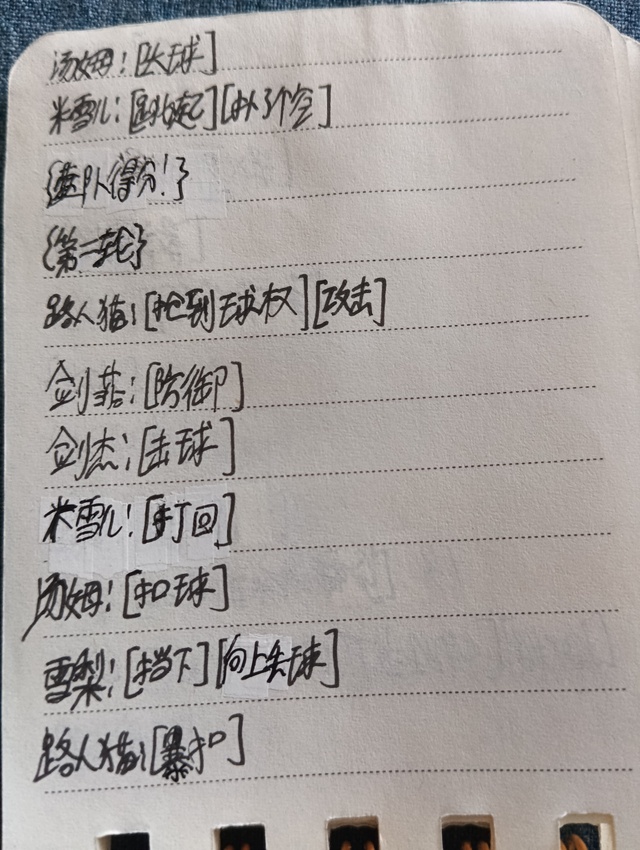 汤姆：[飞球]
米雪儿：[跳起][扑了个空]
{蓝队得分！}
{第二轮}
路人猫：[抢到球权][攻击]
剑菲：[防御]
剑杰：[击球]
米雪儿：[打回]
汤姆：[扣球]
雪梨：[挡下][向上失球]
路人猫：[暴扣]